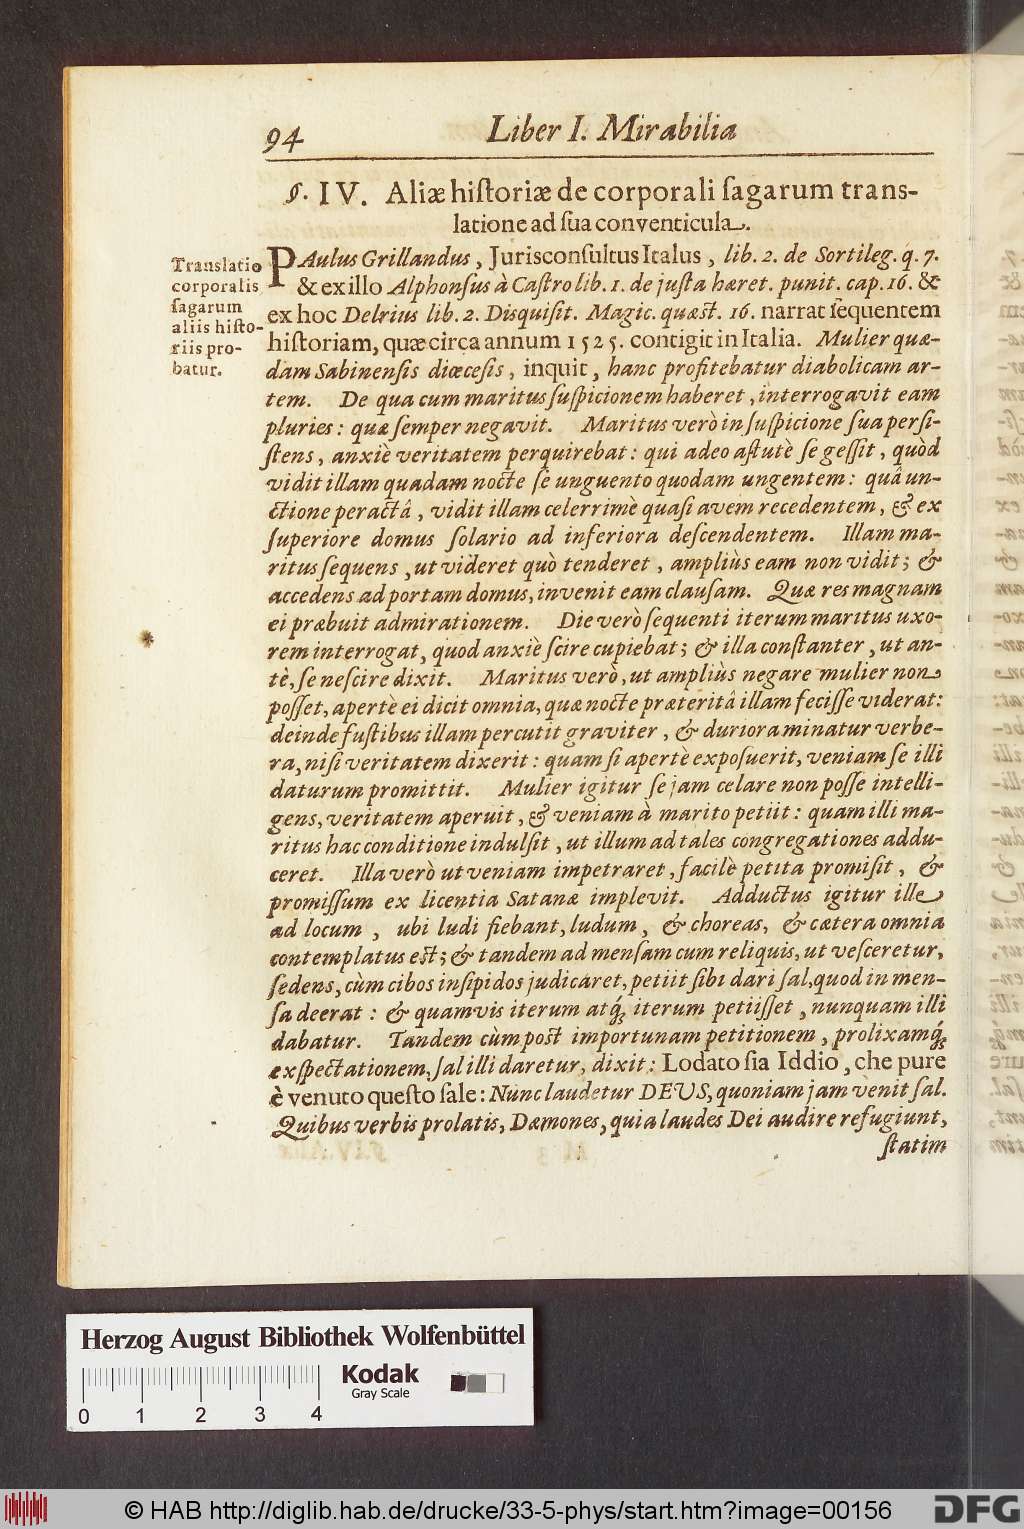 94
Liber I. Mirabilia
§. IV. Aliæ hiſtoriæ de corporali ſagarum trans-
latione ad ſua conventicula.
Translatio
corporalis
ſagarum
aliis hiſto-
riis pro-
batur.
PAulus Grillandus, Jurisconſultus Italus, lib. 2. de Sortileg. q. 7.
& ex illo Alphonſus à Caſtro lib. 1. de juſta hæret. punit. cap. 16. &
ex hoc Delrius lib. 2. Disquiſit. Magic. quæſt. 16. narrat ſequentem
hiſtoriam, quæ circa annum 1525. contigit in Italia. Mulier quæ-
dam Sabinenſis diœceſis, inquit, hanc profitebatur diabolicam ar-
tem. De qua cum maritus ſuſpicionem haberet, interrogavit eam
pluries: quæ ſemper negavit. Maritus verò in ſuſpicione ſua perſi-
ſtens, anxiè veritatem perquirebat: qui adeo aſtutè ſe geſſit, quòd
vidit illam quadam nocte ſe unguento quodam ungentem: quâ un-
ctione peractâ, vidit illam celerrimè quaſi avem recedentem, & ex
ſuperiore domus ſolario ad inferiora deſcendentem. Illam ma-
ritus ſequens, ut videret quò tenderet, ampliùs eam non vidit; &
accedens ad portam domus, invenit eam clauſam. Quæ res magnam
ei præbuit admirationem. Die verò ſequenti iterum maritus uxo-
rem interrogat, quod anxiè ſcire cupiebat; & illa conſtanter, ut an-
tè, ſe neſcire dixit. Maritus verò, ut ampliùs negare mulier non
poſſet, apertè ei dicit omnia, quæ nocte præteritâ illam feciſſe viderat:
deinde fuſtibus illam percutit graviter, & duriora minatur verbe-
ra, niſi veritatem dixerit: quam ſi apertè expoſuerit, veniam ſe illi
daturum promittit. Mulier igitur ſe jam celare non poſſe intelli-
gens, veritatem aperuit, & veniam à marito petiit: quam illi ma-
ritus hac conditione indulſit, ut illum ad tales congregationes addu-
ceret. Illa verò ut veniam impetraret, facilè petita promiſit, &
promiſſum ex licentia Satanæ implevit. Adductus igitur ille
ad locum, ubi ludi fiebant, ludum, & choreas, & cætera omnia
contemplatus eſt; & tandem ad menſam cum reliquis, ut veſceretur,
ſedens, cùm cibos inſipidos judicaret, petiit ſibi dari ſal, quod in men-
ſa deerat: & quamvis iterum atq́; iterum petiiſſet, nunquam illi
dabatur. Tandem cùm poſt importunam petitionem, prolixamq́;
exſpectationem, ſal illi daretur, dixit: Lodato ſia Iddio, che pure
è venuto queſto ſale: Nunc laudetur DEUS, quoniam jam venit ſal.
Quibus verbis prolatis, Dæmones, quia laudes Dei audire refugiunt,
ſtatim
Herzog August Bibliothek Wolfenbüttel
Kodak
Gray Scale
0 1 2 3 4
© HAB http://diglib.hab.de/drucke/33-5-phys/start.htm?image=00156
DFG